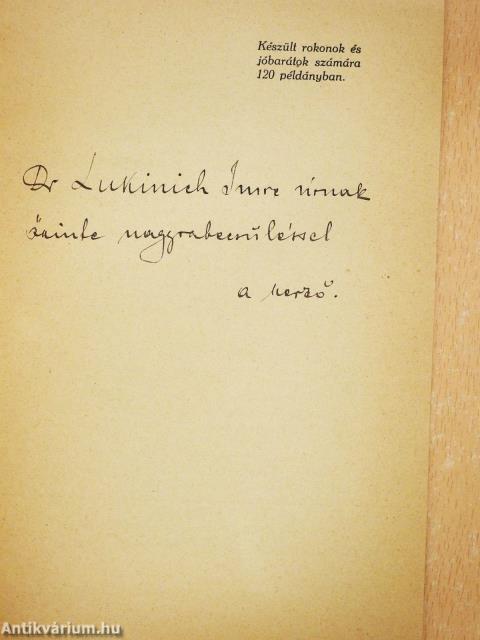 Készült rokonok és
jóbarátok számára
120 példányban.
Dr Lukinich Imre úrnak
őszinte nagyrabecsüléssel
a szerző.
Antikvárium.hu